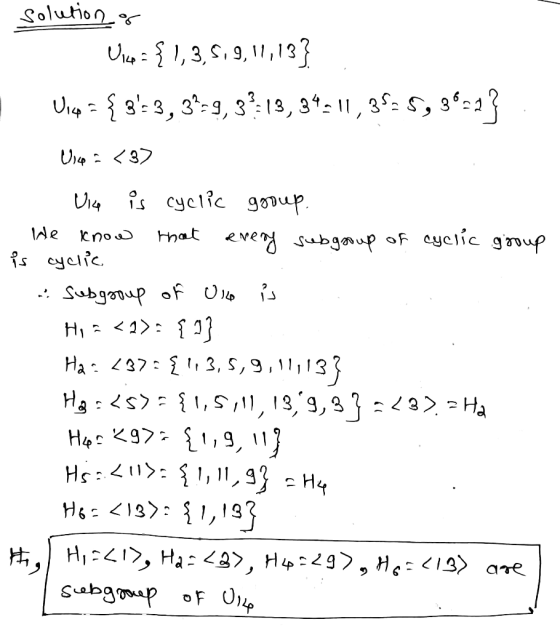 Solution :
U14 = { 1, 3, 5, 9, 11, 13 }
U14 = { 3¹=3, 3²=9, 3³=13, 3⁴=11, 3⁵=5, 3⁶=1 }
U14 = <3>
U14 is cyclic group.
We know that every subgroup of cyclic group
is cyclic
∴ Subgroup of U14 is
H1 = <1> = {1}
H2 = <3> = { 1, 3, 5, 9, 11, 13 }
H3 = <5> = { 1, 5, 11, 13, 9, 3 } = <3> = H2
H4 = <9> = { 1, 9, 11 }
H5 = <11> = { 1, 11, 9 } = H4
H6 = <13> = { 1, 13 }
H1, H1 = <1>, H2 = <3>, H4 = <9>, H6 = <13> are
subgroup of U14